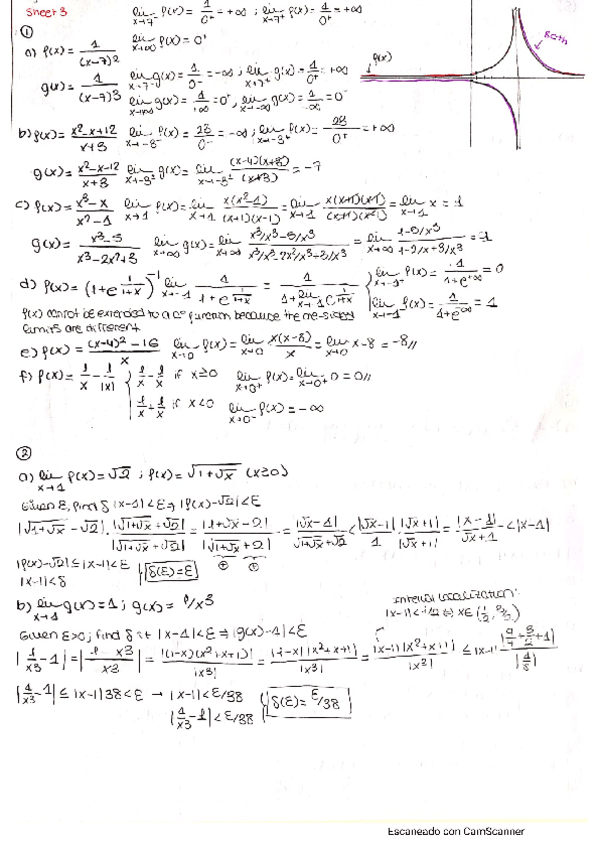 Sheet 3
lim x→7⁻ f(x) = 1/0⁺ = +∞ ; lim x→7⁺ f(x) = 1/0⁺ = +∞
①
a) f(x) = 1/(x-7)² lim x→∞ f(x) = 0⁺
f(x)
Both
g(x) = 1/(x-7)³ lim x→7⁻ g(x) = 1/0⁻ = -∞ ; lim x→7⁺ g(x) = 1/0⁺ = +∞
lim x→+∞ g(x) = 1/+∞ = 0⁺, lim x→-∞ g(x) = 1/-∞ = 0⁻
b) f(x) = x²-x+12/x+3 lim x→-3⁻ f(x) = 28/0⁻ = -∞ ; lim x→-3⁺ f(x) = 28/0⁺ = +∞
g(x) = x²-x-12/x+3 lim g(x) = lim (x-4)(x+3)/(x+3) = -7
c) f(x) = x³-x/x²-1 lim x→1 f(x) = lim x→1 x(x²-1)/(x+1)(x-1) = lim x→1 x(x+1)(x-1)/(x+1)(x-1) = lim x→1 x = 1
g(x) = x³-5/x³-2x²+3 lim x→∞ g(x) = lim x→∞ = 1
d) f(x) = (1+e^(1/1+x))⁻¹ lim x→-1 1/1+e^(1/1+x) = 1/1+lim x→-1 e^(1/1+x) { lim x→-1⁺ f(x) = 1/1+e^(+∞) = 0
lim x→-1⁻ f(x) = 1/1+e^(-∞) = 1
f(x) cannot be extended to a function because the one-sided
limits are different
e) f(x) = (x-4)²-16/x lim x→0 f(x) = lim x→0 x(x-8)/x = lim x→0 x-8 = -8//
f) f(x) = 1/x - 1/|x| { 1/x - 1/x if x≥0 lim x→0⁺ f(x) = lim x→0⁺ 0 = 0//
1/x + 1/x if x<0 lim x→0⁻ f(x) = -∞
②
a) lim x→1 f(x) = √2 ; f(x) = √(1+√x) (x≥0)
Given ε, find δ |x-1|<ε ⇒ |f(x)-√2|<ε
|√(1+√x) - √2| · |√(1+√x) + √2|/|√(1+√x) + √2| = |1+√x-2|/|√(1+√x) + √2| = |√x-1|/√(1+√x)+√2 < |√x-1|/1 · |√x+1|/|√x+1| = |x-1|/√x+1 < |x-1|
|f(x)-√2| ≤ |x-1| < ε
|x-1|<δ δ(ε)=ε
b) lim x→1 g(x) = 1 ; g(x) = 1/x³
Interval localization:
|x-1|<1/2 ⇔ x∈(1/2, 3/2)
Given ε>0, find δ s.t |x-1|<ε ⇒ |g(x)-1|<ε
|1/x³ - 1| = |1-x³/x³| = |(1-x)(x²+x+1)|/|x³| = |1-x||x²+x+1|/|x³| = |x-1||x²+x+1|/|x³| ≤ |x-1| |9/4+3/2+1|/|1/8|
|1/x³-1| ≤ |x-1|38 < ε → |x-1| < ε/38 δ(ε) = ε/38
|1/x³-1| < ε/38
Escaneado con CamScanner